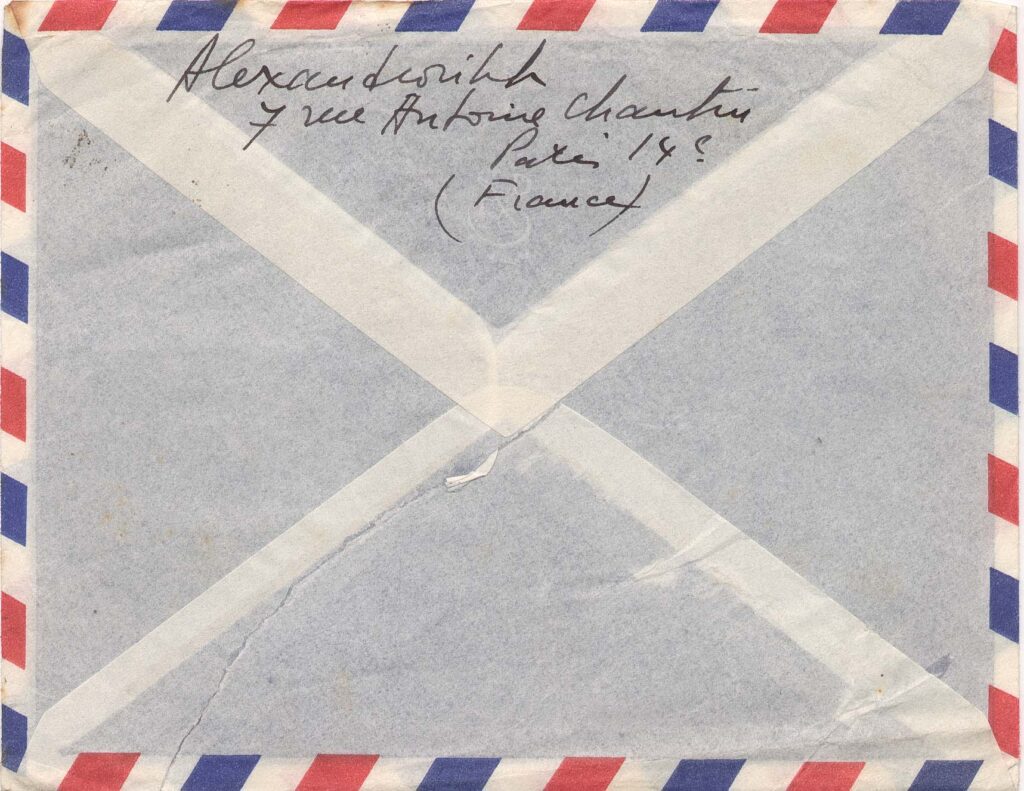 Alexandrovitch
7 rue Antoine Chantin
Paris 14e
(France)